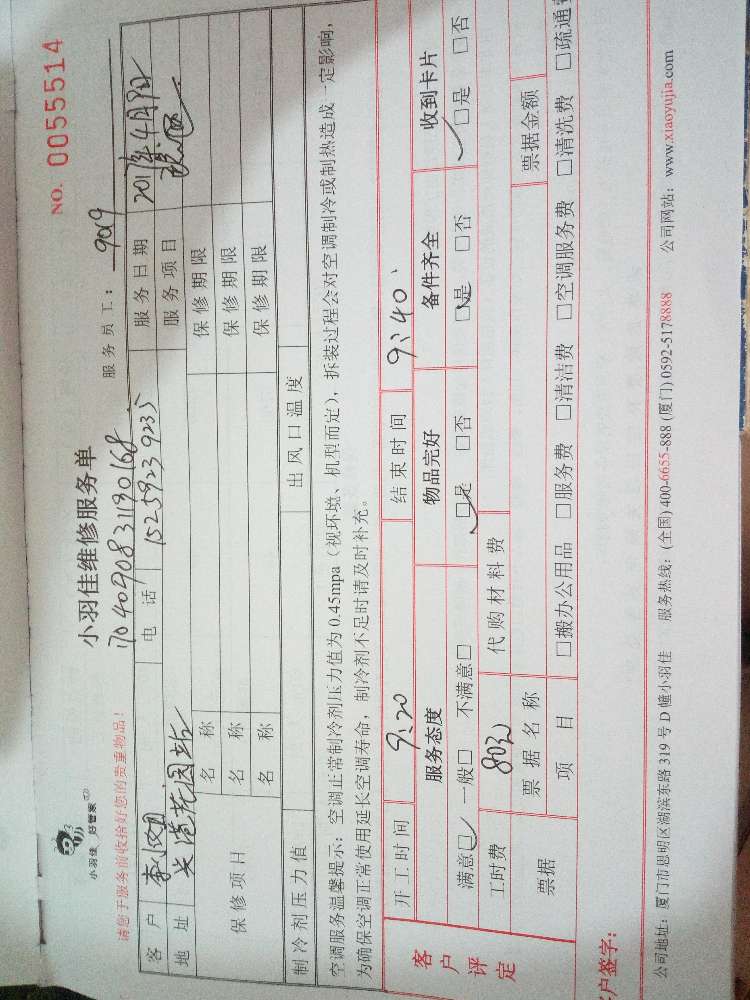 NO. 0055514
小羽佳 好管家
小羽佳维修服务单
服务员工： 9019
1704090831190168
请您于服务前收拾好您的贵重物品！
客 户 电 话 15259239235 服务日期 2017年4月9日
地 址 服务项目
保修项目 名 称 保修期限
名 称 保修期限
名 称 保修期限
制冷剂压力值 出风口温度
空调服务温馨提示：空调正常制冷剂压力值为 0.45mpa（视环境、机型而定），拆装过程会对空调制冷或制热造成一定影响，
为确保空调正常使用延长空调寿命，制冷剂不足时请及时补充。
客户评定
开工时间 9:20 结束时间 9:40
服务态度 物品完好 备件齐全 收到卡片
满意□ 一般□ 不满意□ □是 □否 □是 □否 □是 □否
工时费 80元 代购材料费
票据 票据名称 票据金额
项 目 □搬办公用品 □服务费 □清洁费 □空调服务费 □清洗费 □疏通
户签字：
公司地址：厦门市思明区湖滨东路 319 号 D 幢小羽佳 服务热线：(全国) 400-6655-888 (厦门) 0592-5178888 公司网站：www.xiaoyujia.com